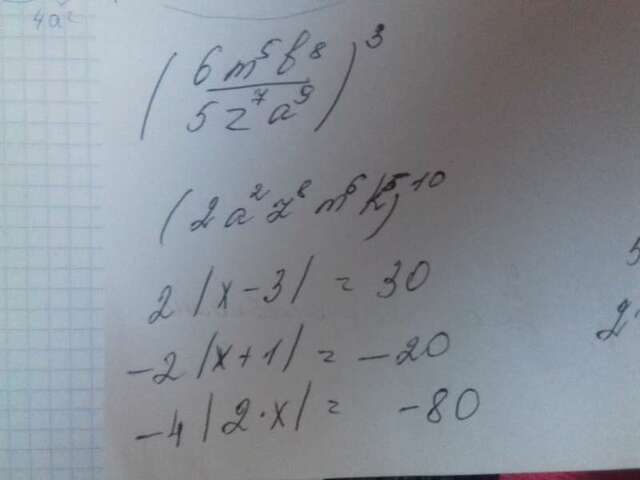 (6m⁵b⁸/5z⁷a⁹)³
(2a²z⁸m⁶k⁵)¹⁰
2|x-3| = 30
-2|x+1| = -20
-4|2·x| = -80